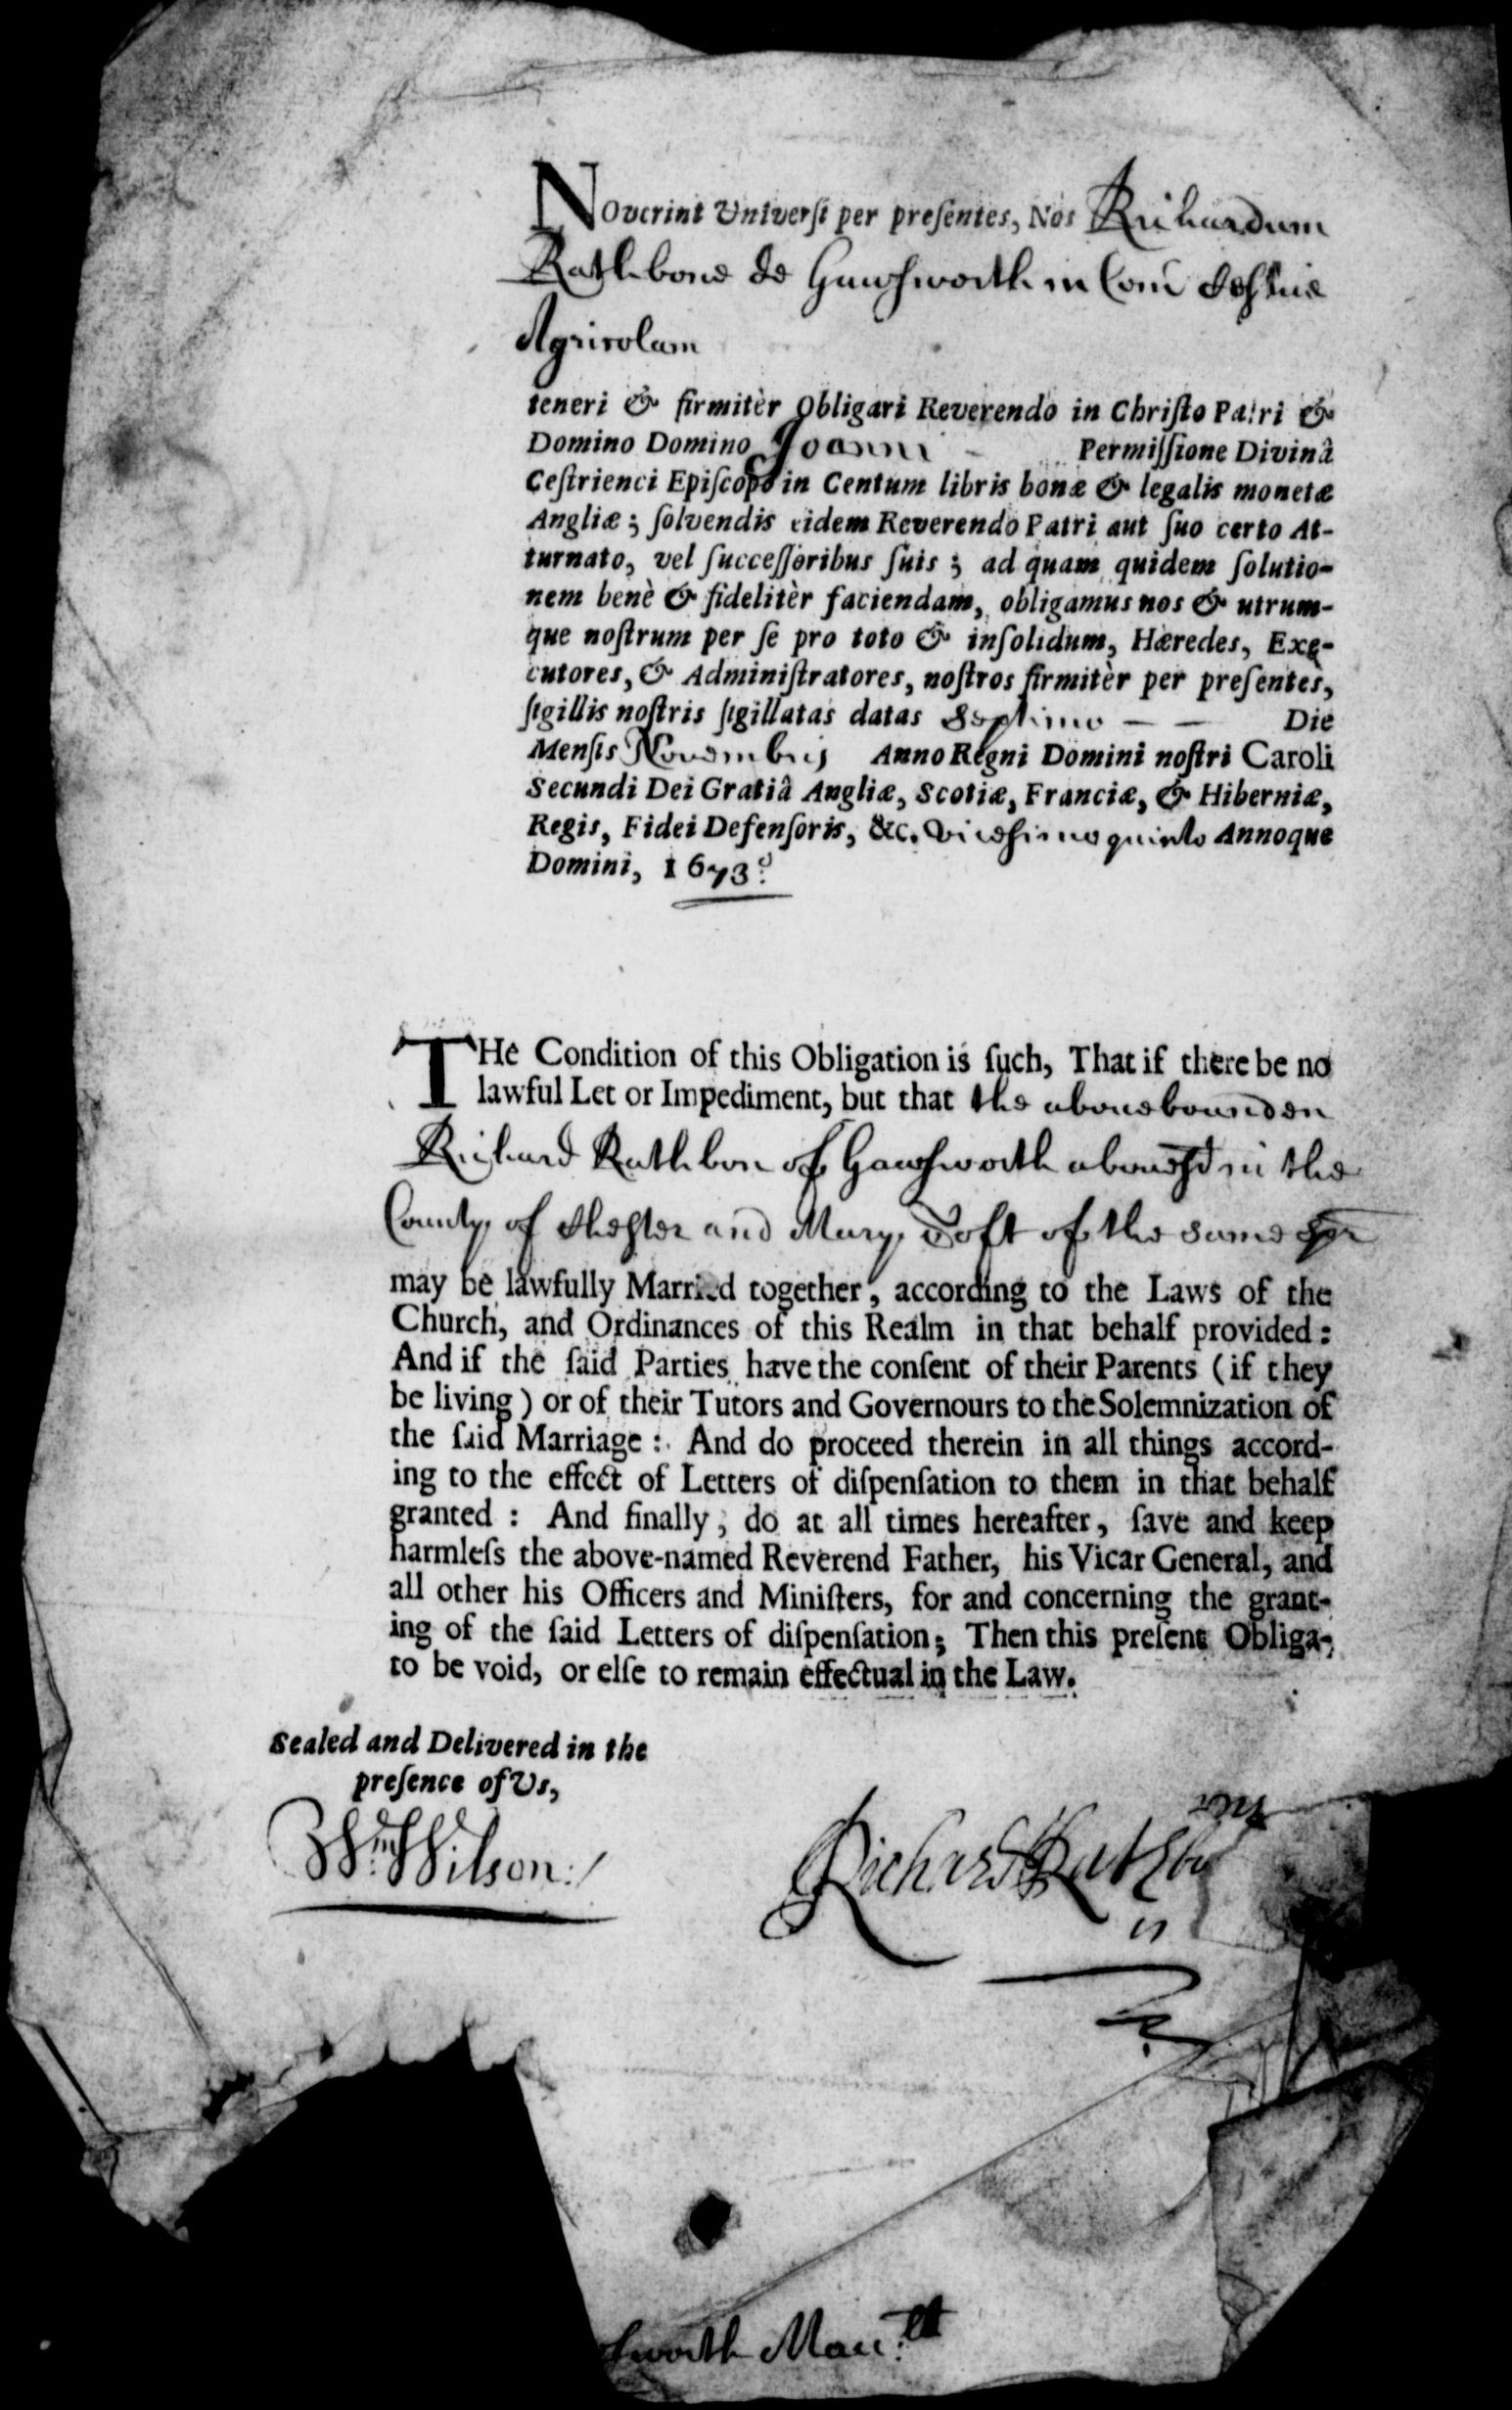 NOverint Universi per presentes, Nos Richardum
Rathbone de Gawsworth in Com Cestrie
Agricolam
teneri & firmitèr Obligari Reverendo in Christo Patri &
Domino Domino Joanni - Permissione Divinâ
Cestrienci Episcopo in Centum libris bonæ & legalis monetæ
Angliæ; solvendis eidem Reverendo Patri aut suo certo At-
turnato, vel successoribus suis; ad quam quidem solutio-
nem benè & fidelitèr faciendam, obligamus nos & utrum-
que nostrum per se pro toto & insolidum, Hæredes, Exe-
cutores, & Administratores, nostros firmitèr per presentes,
sigillis nostris sigillatas datas Septimo — — Die
Mensis Novembris Anno Regni Domini nostri Caroli
Secundi Dei Gratiâ Angliæ, Scotiæ, Franciæ, & Hiberniæ,
Regis, Fidei Defensoris, &c. vicesimo quinto Annoque
Domini, 1673º
THe Condition of this Obligation is such, That if there be no
lawful Let or Impediment, but that the abouebounden
Richard Rathbon of Gawsworth abouesd in the
County of Chester and Mary Toft of the same spr
may be lawfully Married together, according to the Laws of the
Church, and Ordinances of this Realm in that behalf provided:
And if the said Parties have the consent of their Parents (if they
be living) or of their Tutors and Governours to the Solemnization of
the said Marriage: And do proceed therein in all things accord-
ing to the effect of Letters of dispensation to them in that behalf
granted: And finally, do at all times hereafter, save and keep
harmless the above-named Reverend Father, his Vicar General, and
all other his Officers and Ministers, for and concerning the grant-
ing of the said Letters of dispensation; Then this present Obliga-
to be void, or else to remain effectual in the Law.
Sealed and Delivered in the
presence of Us,
Wm Wilson
Richard Rathbo
n
sworth Mar